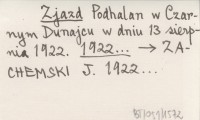 Zjazd Podhalan w Czar-
nym Dunajcu w dniu 13 sierp-
nia 1922. 1922... → ZA-
CHEMSKI J. 1922...